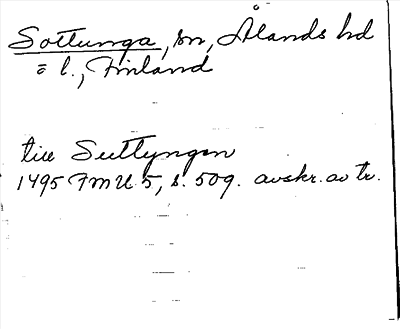 Sottunga, sn, Ålands hd
= l., Finland
till Suttyngon
1495 FMU 5, s. 509. avskr. av tr.